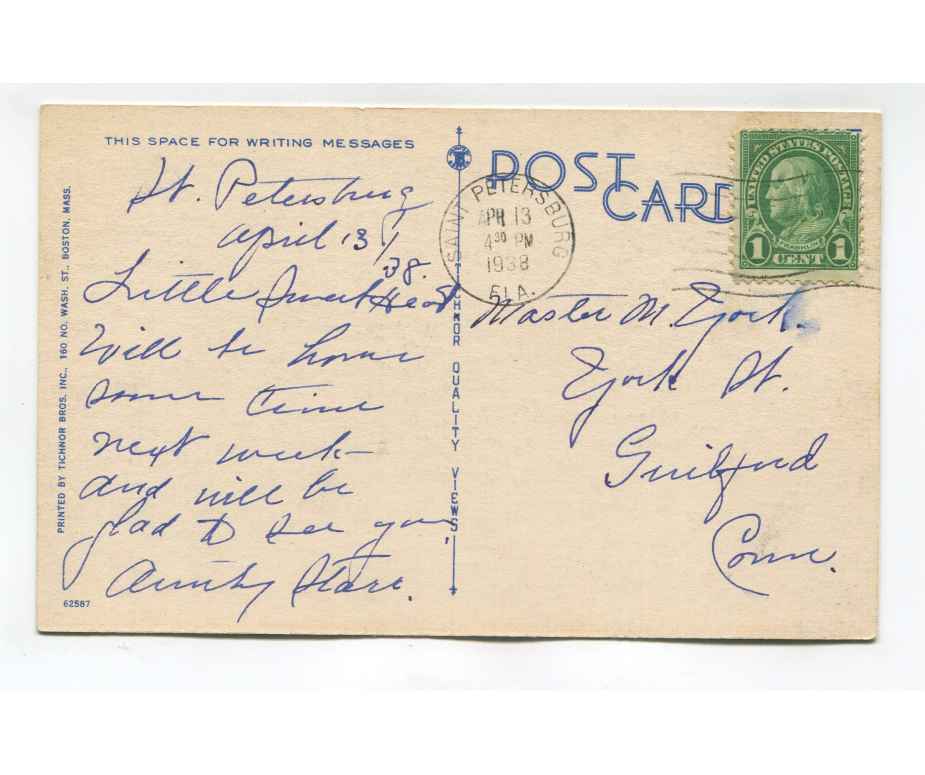 THIS SPACE FOR WRITING MESSAGES
St. Petersburg
April 13/
38.
Little Sweet Heart
Will be home
some time
next week—
and will be
glad to see you
Aunty Starr.
PRINTED BY TICHNOR BROS. INC., 160 NO. WASH. ST., BOSTON, MASS.
62587
TICHNOR QUALITY VIEWS
POST
CARD
SAINT PETERSBURG
APR 13
4 30 PM
1938
FLA.
UNITED STATES POSTAGE
FRANKLIN
1 CENT 1
Master M. York.
York St.
Guilford
Conn.